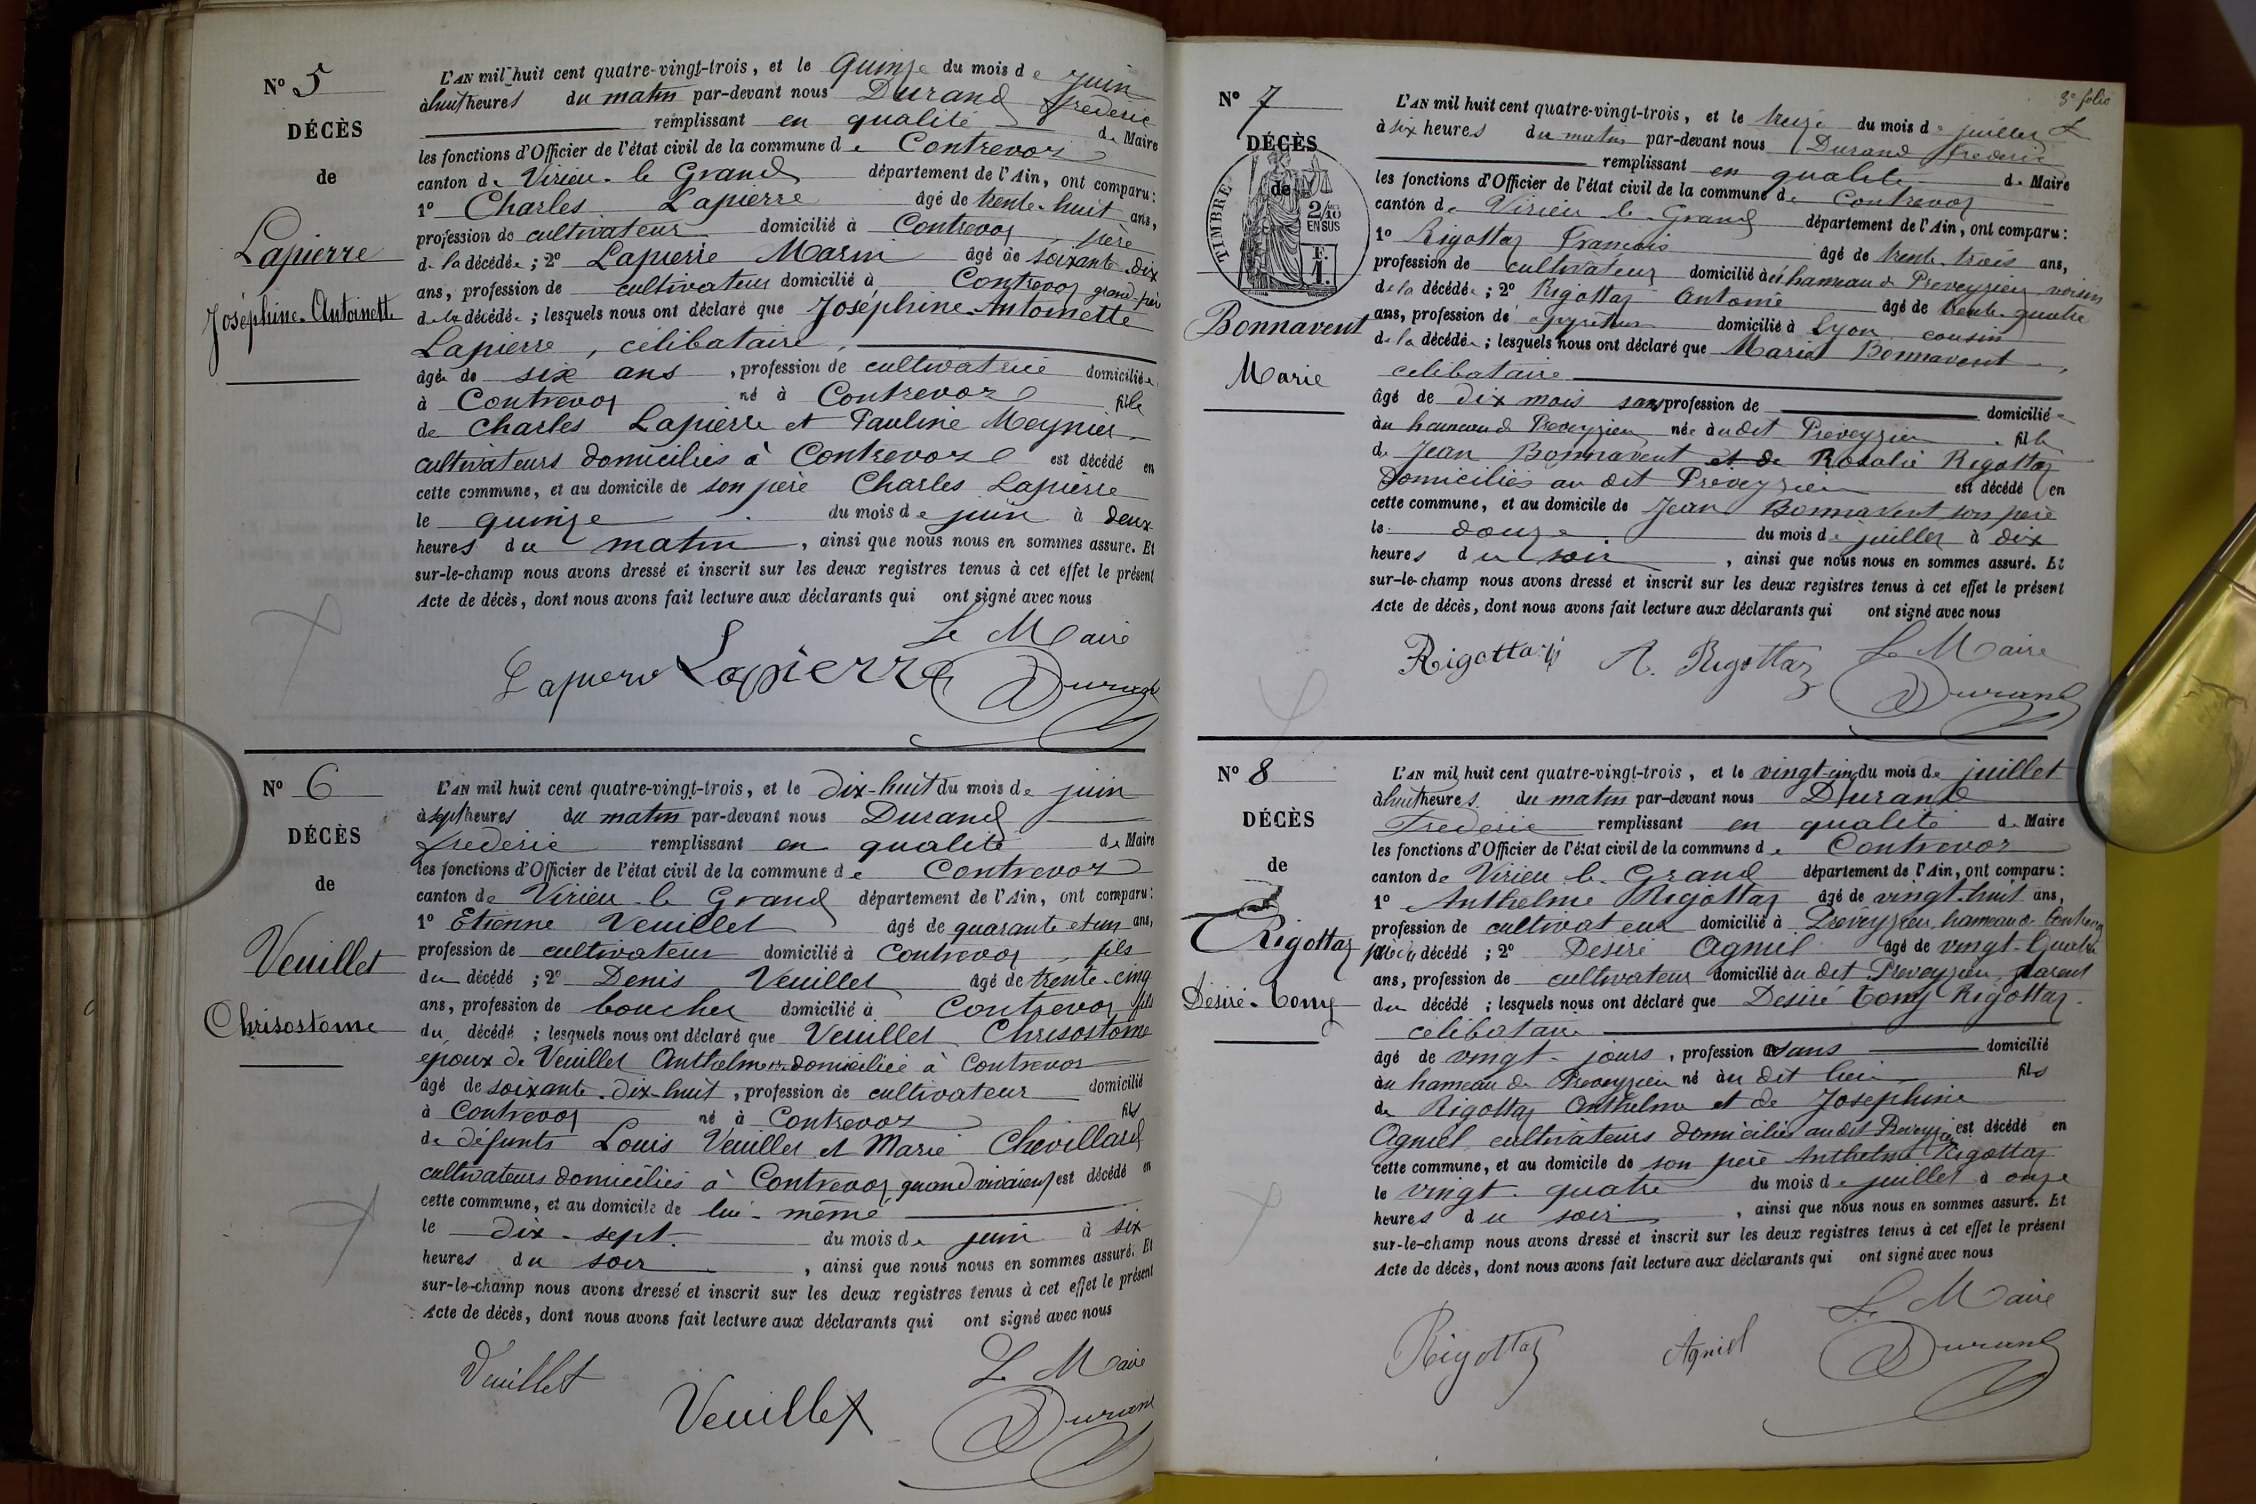 N° 5
DÉCÈS
de
Lapierre
Joséphine-Antoinette
L'AN mil huit cent quatre-vingt-trois, et le Quinze du mois de juin
à huit heures du matin par-devant nous Durand frederic
remplissant en qualité de Maire
les fonctions d'Officier de l'état civil de la commune de Contrevoz
canton de Virieu-le-Grand département de l'Ain, ont comparu :
1° Charles Lapierre âgé de trente-huit ans,
profession de cultivateur domicilié à Contrevoz, père
de la décédée ; 2° Lapierre Marin âgé de soixante-dix
ans, profession de cultivateur domicilié à Contrevoz grand père
de la décédée ; lesquels nous ont déclaré que Joséphine-Antoinette
Lapierre, célibataire,
âgée de six ans, profession de cultivatrice domiciliée
à Contrevoz né à Contrevoz fille
de Charles Lapierre et Pauline Meynier
cultivateurs domiciliés à Contrevoz est décédé en
cette commune, et au domicile de son père Charles Lapierre
le quinze du mois de juin à deux
heures du matin, ainsi que nous nous en sommes assuré. Et
sur-le-champ nous avons dressé et inscrit sur les deux registres tenus à cet effet le présent
Acte de décès, dont nous avons fait lecture aux déclarants qui ont signé avec nous
Le Maire
Lapierre Lapierre Durand
N° 6
DÉCÈS
de
Veuillet
Chrisostome
L'AN mil huit cent quatre-vingt-trois, et le dix-huit du mois de juin
à sept heures du matin par-devant nous Durand
frederic remplissant en qualité de Maire
les fonctions d'Officier de l'état civil de la commune de Contrevoz
canton de Virieu-le-Grand département de l'Ain, ont comparu :
1° Etienne Veuillet âgé de quarante et un ans,
profession de cultivateur domicilié à Contrevoz, fils
du décédé ; 2° Denis Veuillet âgé de trente-cinq
ans, profession de boucher domicilié à Contrevoz fils
du décédé ; lesquels nous ont déclaré que Veuillet Chrisostome
époux de Veuillet domiciliée à Contrevoz
âgé de soixante-dix-huit, profession de cultivateur domicilié
à Contrevoz né à Contrevoz fils
de défunts Louis Veuillet et Marie Chevillard
cultivateurs domiciliés à Contrevoz, quand vivaient est décédé en
cette commune, et au domicile de lui-même
le dix-sept du mois de juin à six
heures du soir, ainsi que nous nous en sommes assuré. Et
sur-le-champ nous avons dressé et inscrit sur les deux registres tenus à cet effet le présent
Acte de décès, dont nous avons fait lecture aux déclarants qui ont signé avec nous
Le Maire
Veuillet Veuillet Durand
3e folio
N° 7
DÉCÈS
de
TIMBRE
2/10 EN SUS
F. 1.
Bonnavent
Marie
L'AN mil huit cent quatre-vingt-trois, et le treize du mois de juillet
à six heures du matin par-devant nous Durand Frederic
remplissant en qualité de Maire
les fonctions d'Officier de l'état civil de la commune de Contrevoz
canton de Virieu-le-Grand département de l'Ain, ont comparu :
1° Rigottaz François âgé de trente-trois ans,
profession de cultivateur domicilié à hameau d Preveyzieu voisin
de la décédée ; 2° Rigottaz Antoine âgé de trente-quatre
ans, profession de domicilié à Lyon cousin
de la décédée ; lesquels nous ont déclaré que Marie Bonnavent,
célibataire
âgé de dix mois sans profession de domiciliée
au hameau d Preveyzieu née au dit Preveyzieu fille
de Jean Bonnavent et de Rosalie Rigottaz
Domiciliés au dit Preveyzieu est décédé en
cette commune, et au domicile de Jean Bonnavent son père
le douze du mois de juillet à dix
heures du soir, ainsi que nous nous en sommes assuré. Et
sur-le-champ nous avons dressé et inscrit sur les deux registres tenus à cet effet le présent
Acte de décès, dont nous avons fait lecture aux déclarants qui ont signé avec nous
Le Maire
Rigottaz A. Rigottaz Durand
N° 8
DÉCÈS
de
Rigottaz
Désiré-Tony
L'AN mil huit cent quatre-vingt-trois, et le vingt-cinq du mois de juillet
à huit heures du matin par-devant nous Durand
Frederic remplissant en qualité de Maire
les fonctions d'Officier de l'état civil de la commune de Contrevoz
canton de Virieu-le-Grand département de l'Ain, ont comparu :
1° Anthelme Rigottaz âgé de vingt-huit ans,
profession de cultivateur domicilié à Preveyzieu, hameau de Contrevoz
père du décédé ; 2° Desiré Agniel âgé de vingt-quatre
ans, profession de cultivateur domicilié au dit Preveyzieu, parent
du décédé ; lesquels nous ont déclaré que Desiré Tony Rigottaz
célibataire
âgé de vingt-jours, profession sans domicilié
au hameau de Preveyzieu né au dit lieu fils
de Rigottaz Anthelme et de Josephine
Agniel cultivateurs domiciliés au dit Preveyzieu est décédé en
cette commune, et au domicile de son père Anthelme Rigottaz
le vingt-quatre du mois de juillet à onze
heures du soir, ainsi que nous nous en sommes assuré. Et
sur-le-champ nous avons dressé et inscrit sur les deux registres tenus à cet effet le présent
Acte de décès, dont nous avons fait lecture aux déclarants qui ont signé avec nous
Le Maire
Rigottaz Agniel Durand